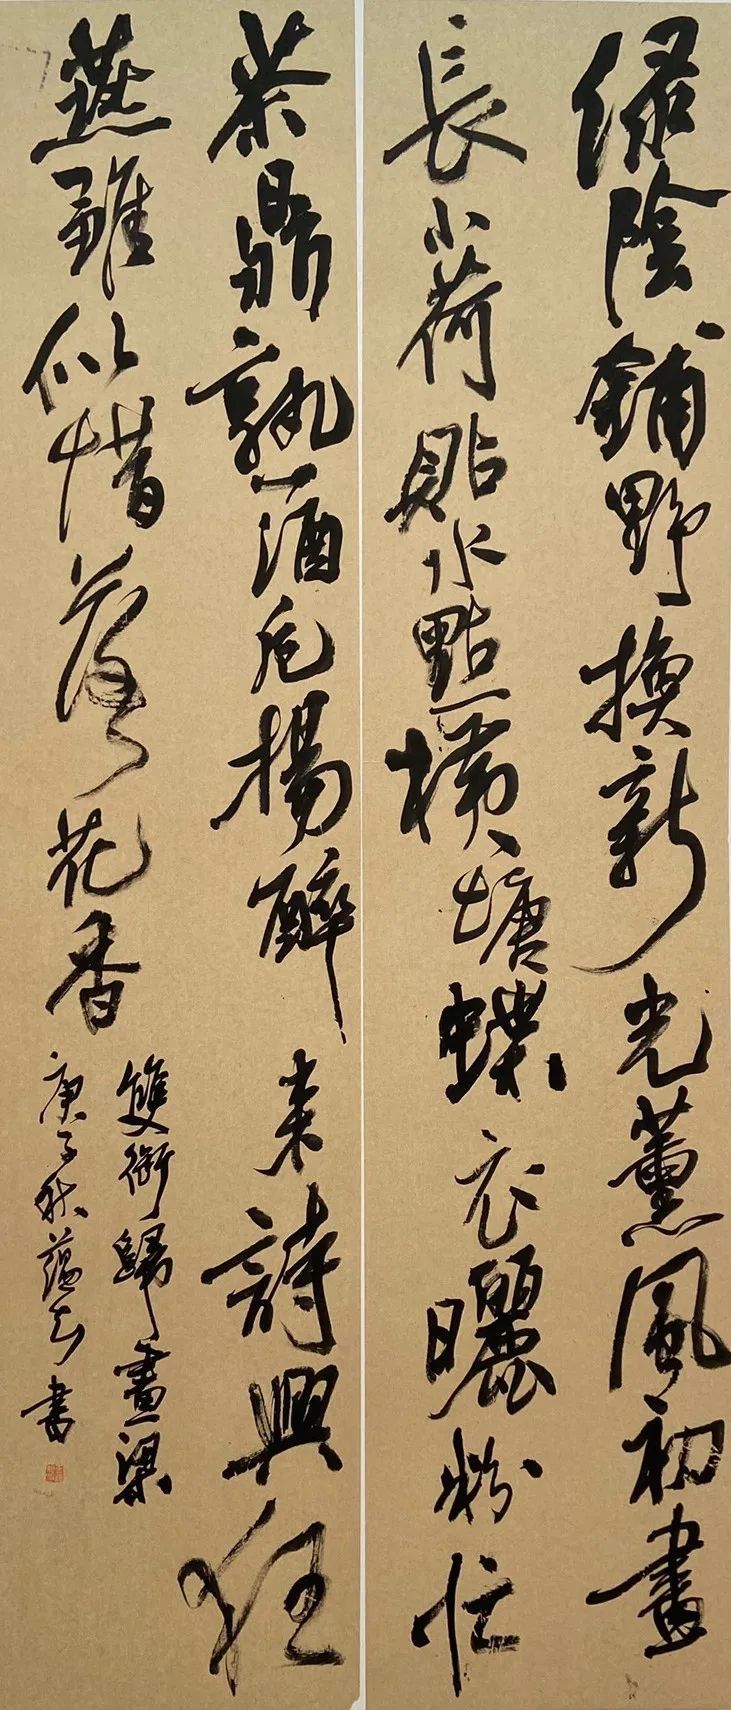 綠陰鋪野換新光薰風初晝
長小荷貼水點橫塘蝶衣曬粉忙
茶鼎熟酒卮揚醉來詩興狂
燕雛似惜落花香
雙銜歸畫梁
庚子秋蘊書